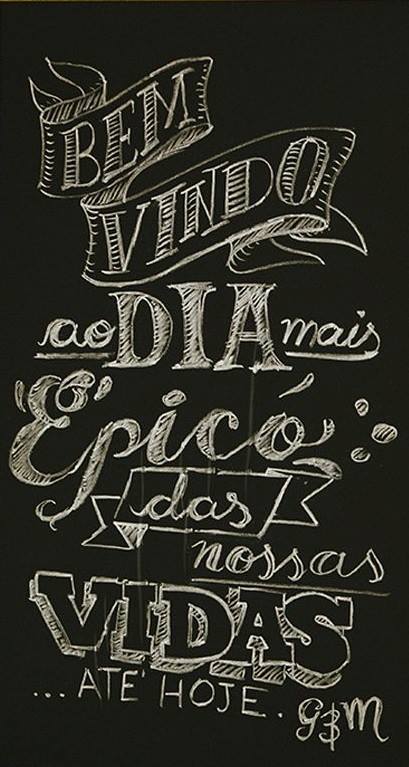 BEM
VINDO
ao DIA mais
Épico
das
nossas
VIDAS
... ATÉ HOJE.
G&M